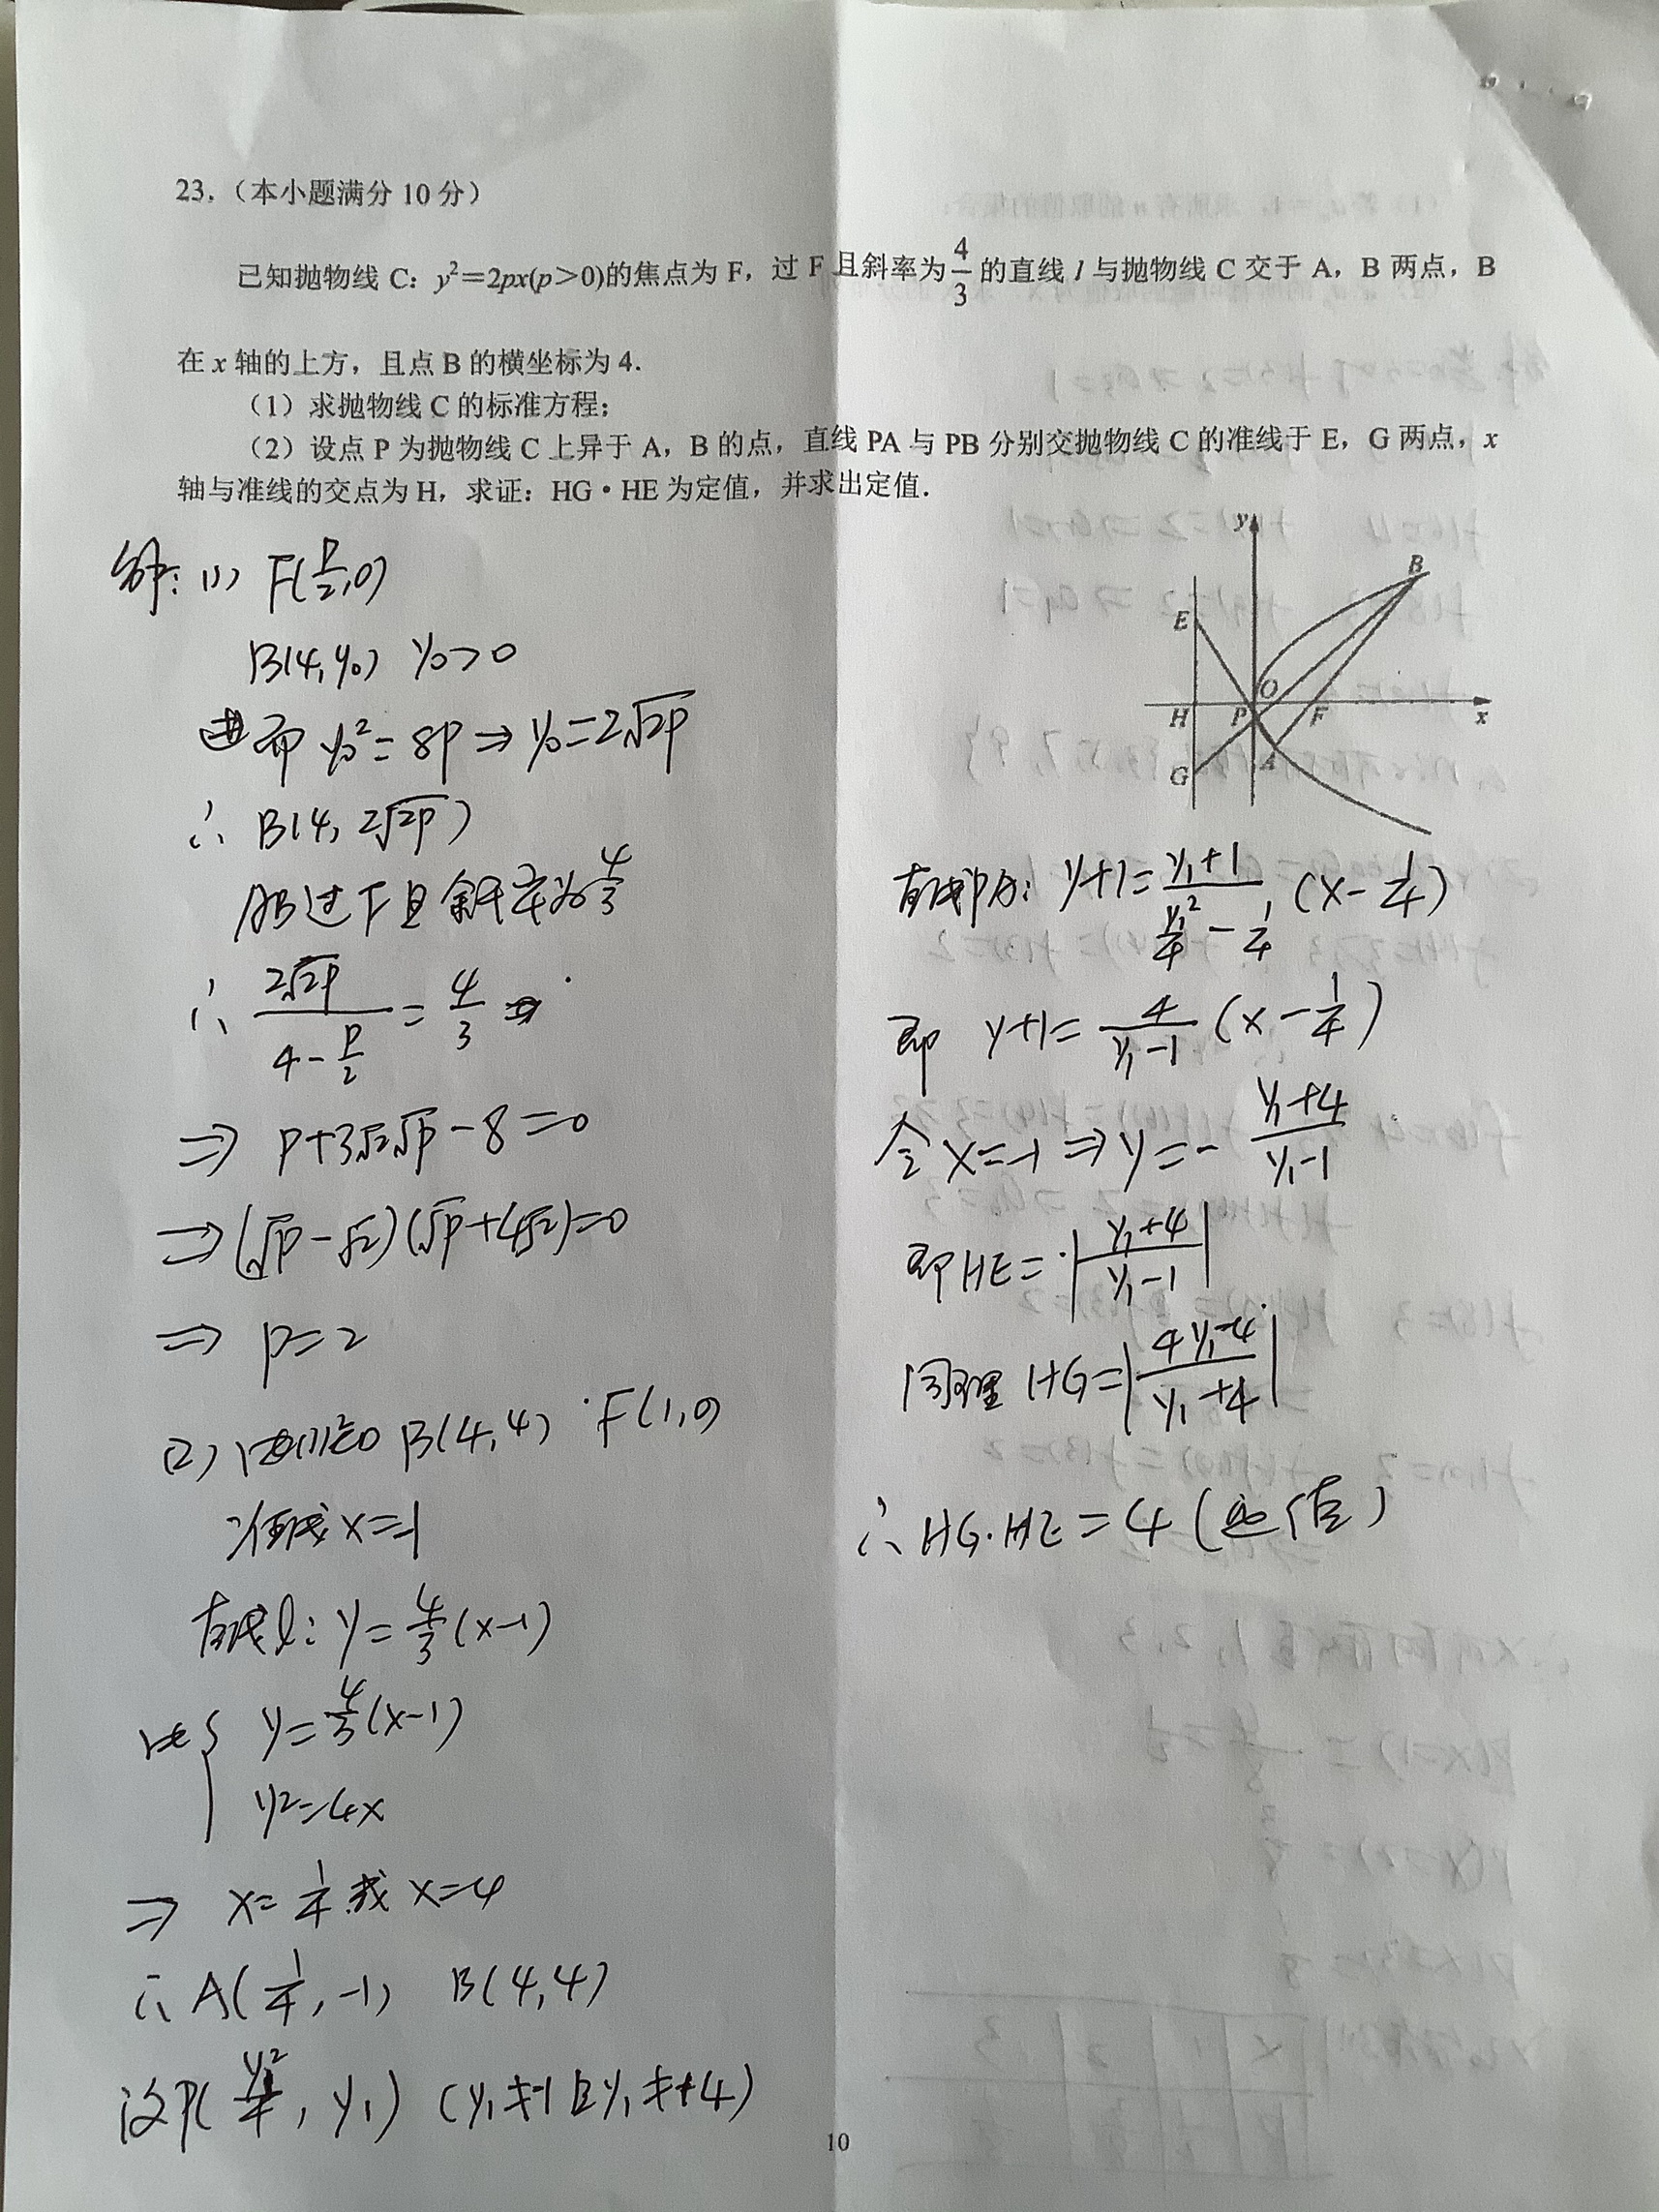 23.（本小题满分 10 分）
已知抛物线 C：y²＝2px(p＞0)的焦点为 F，过 F 且斜率为 4/3 的直线 l 与抛物线 C 交于 A，B 两点，B
在 x 轴的上方，且点 B 的横坐标为 4.
（1）求抛物线 C 的标准方程；
（2）设点 P 为抛物线 C 上异于 A，B 的点，直线 PA 与 PB 分别交抛物线 C 的准线于 E，G 两点，x
轴与准线的交点为 H，求证：HG·HE 为定值，并求出定值.
解: (1) F(p/2, 0)
B(4, y₀) y₀>0
而 y₀²=8p ⇒ y₀=2√2p
∴ B(4, 2√2p)
AB过F且斜率为4/3
∴ 2√2p/(4-p/2) = 4/3
⇒ p+3√2√p-8=0
⇒ (√p-√2)(√p+4√2)=0
⇒ p=2
(2) 由(1)知 B(4,4) F(1,0)
准线 x=-1
直线l: y=4/3(x-1)
由{ y=4/3(x-1)
y²=4x
⇒ x=1/4 或 x=4
∴ A(1/4, -1) B(4,4)
设P(y₁²/4, y₁) (y₁≠-1且y₁≠+4)
y
B
E
O
H P F x
G A
直线PA: y+1=(y₁+1)/(y₁²/4-1/4) (x-1/4)
即 y+1=4/(y₁-1) (x-1/4)
令 x=-1 ⇒ y=-(y₁+4)/(y₁-1)
即HE=|(y₁+4)/(y₁-1)|
同理 HG=|(4y₁-4)/(y₁+4)|
∴ HG·HE=4 (定值)
10